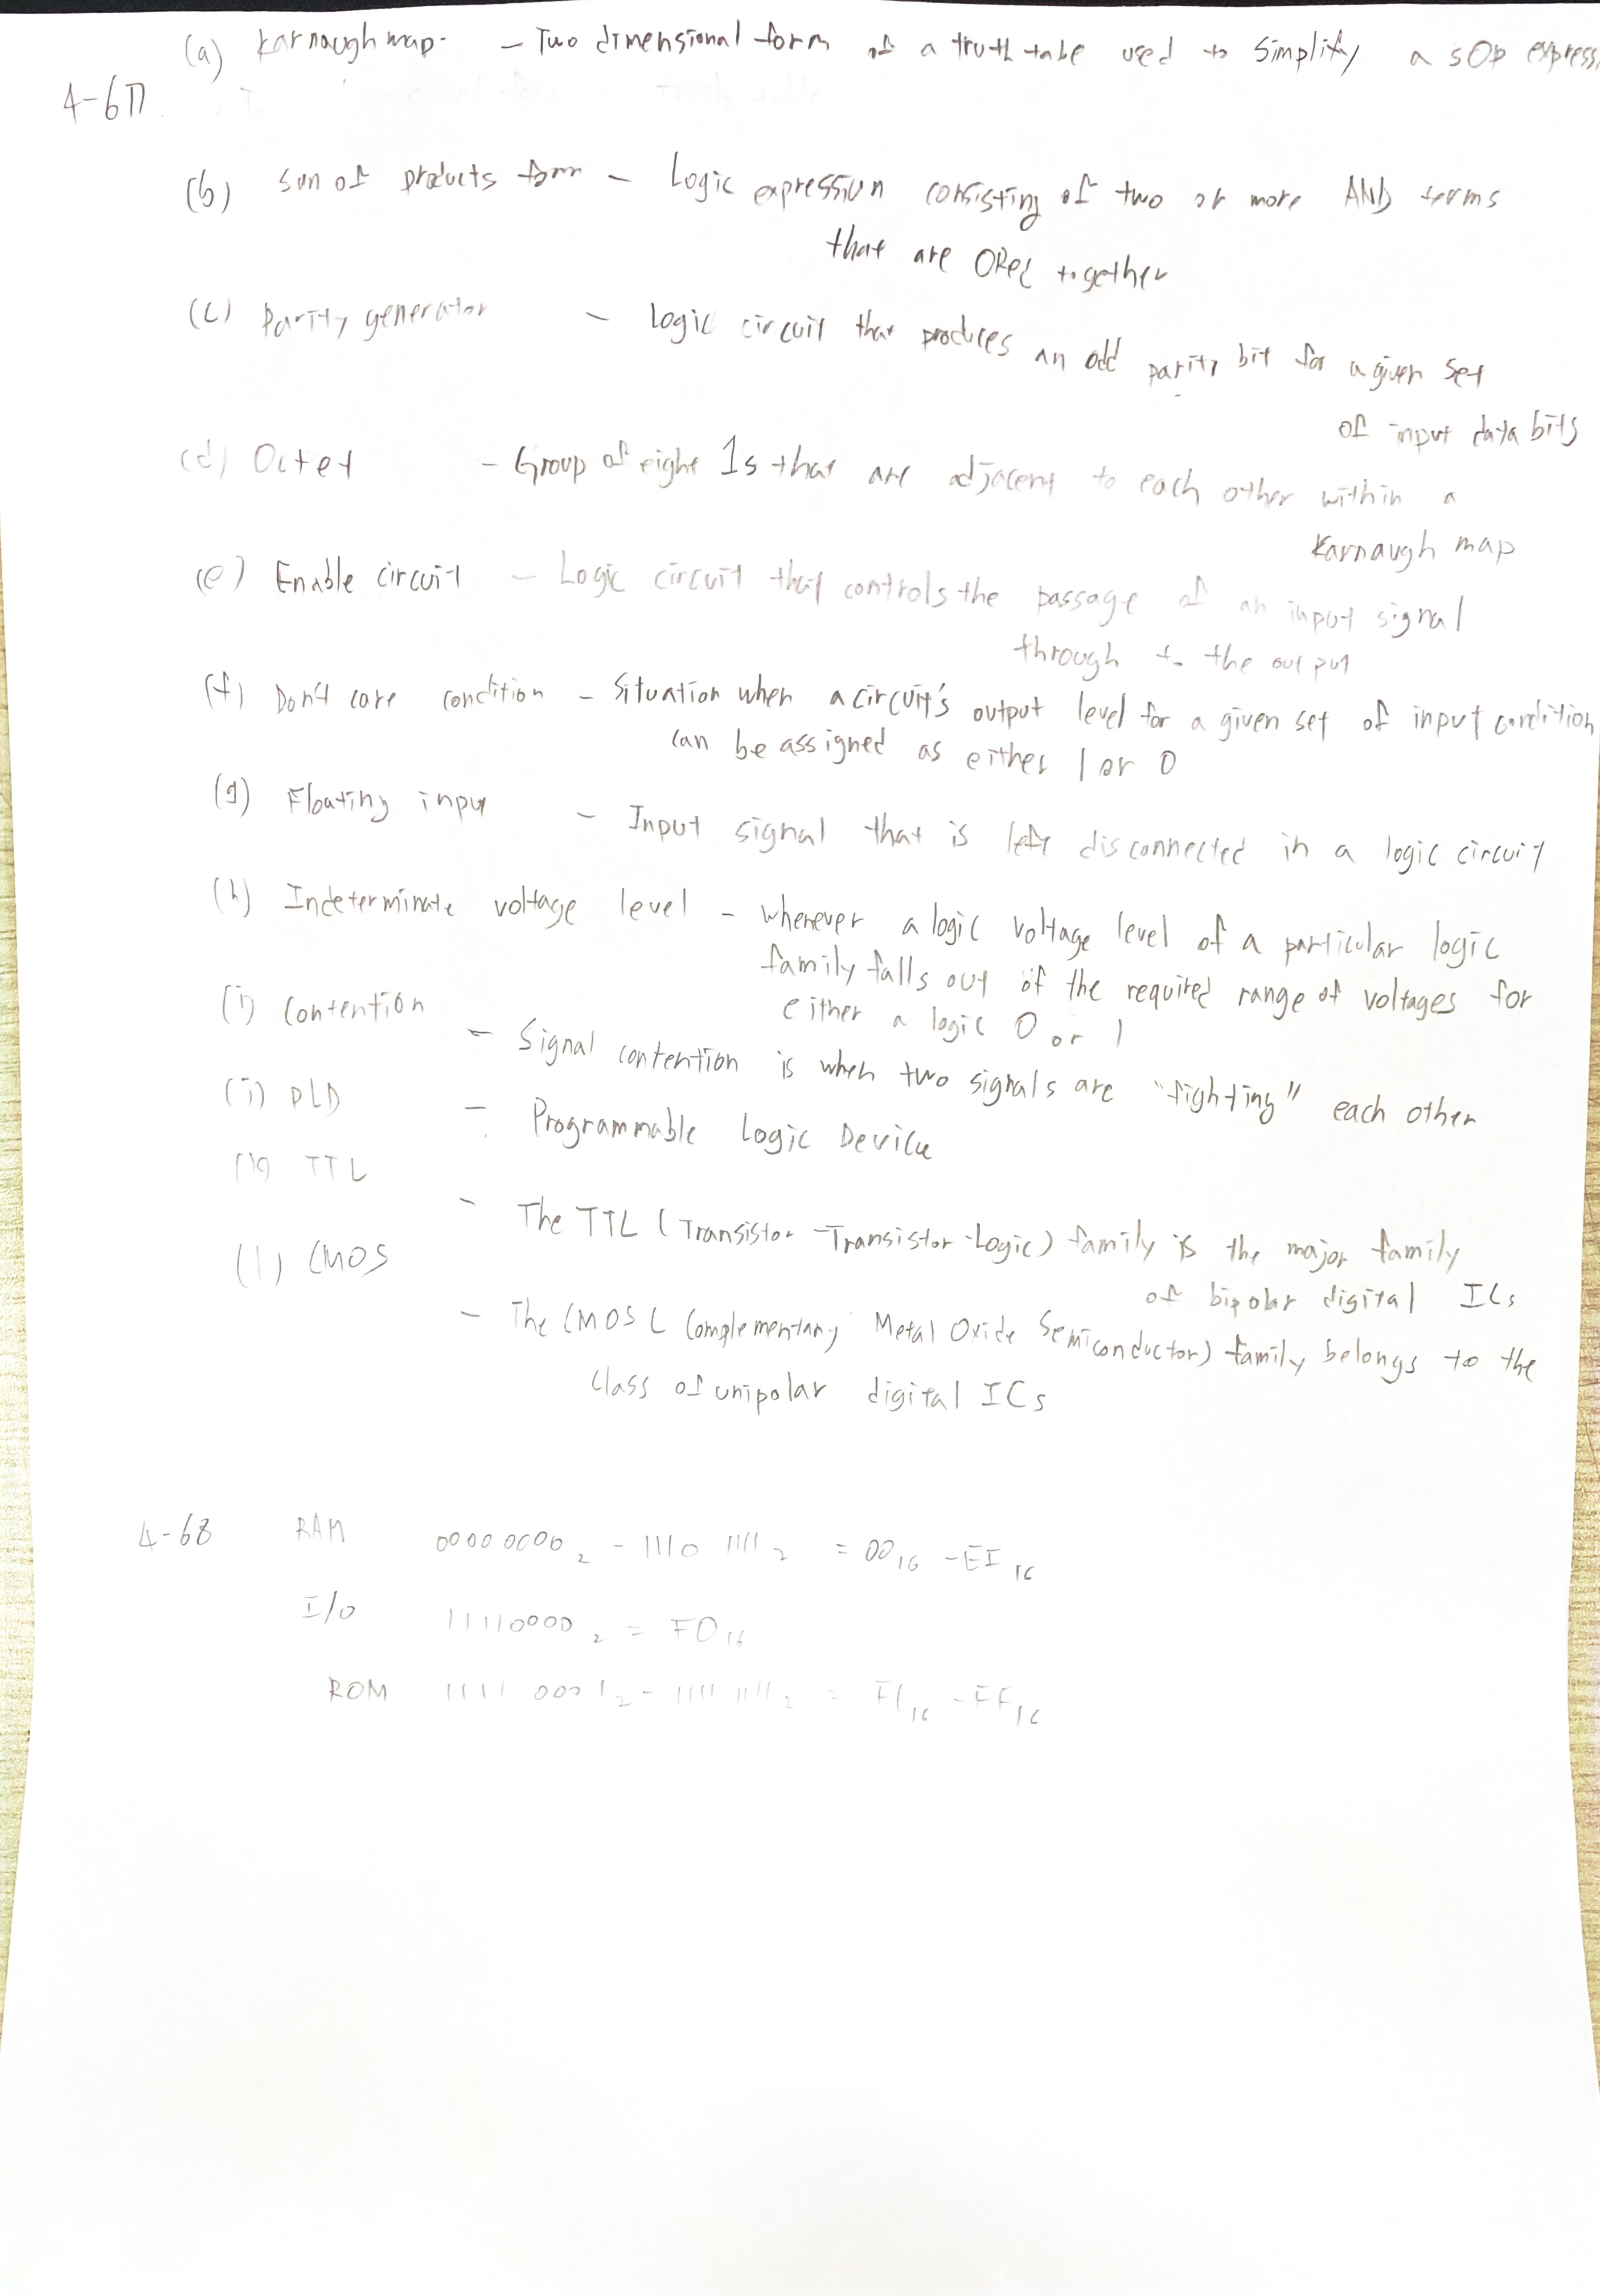 (a) Karnaugh map. – Two dimensional form of a truth table used to simplify a SOP express
4-67
(b) sum of products form – Logic expression consisting of two or more AND terms
that are ORed together
(c) Parity generator – logic circuit that produces an odd parity bit for a given set
of input data bits
(d) Octet – Group of eight 1s that are adjacent to each other within a
Karnaugh map
(e) Enable circuit – Logic circuit that controls the passage of an input signal
through to the output
(f) Don't care condition – Situation when a circuit's output level for a given set of input condition
can be assigned as either 1 or 0
(g) Floating input – Input signal that is left disconnected in a logic circuit
(h) Indeterminate voltage level – whenever a logic voltage level of a particular logic
family falls out of the required range of voltages for
either a logic 0 or 1
(i) Contention – Signal contention is when two signals are "fighting" each other
(j) PLD – Programmable Logic Device
(k) TTL – The TTL (Transistor-Transistor-Logic) family is the major family
of bipolar digital ICs
(l) CMOS – The CMOS (Complementary Metal Oxide Semiconductor) family belongs to the
class of unipolar digital ICs
4-68 RAM 00000000₂ – 1110 1111₂ = 00₁₆ – EF₁₆
I/O 11110000₂ = F0₁₆
ROM 1111 0001₂ – 1111 1111₂ = F1₁₆ – FF₁₆